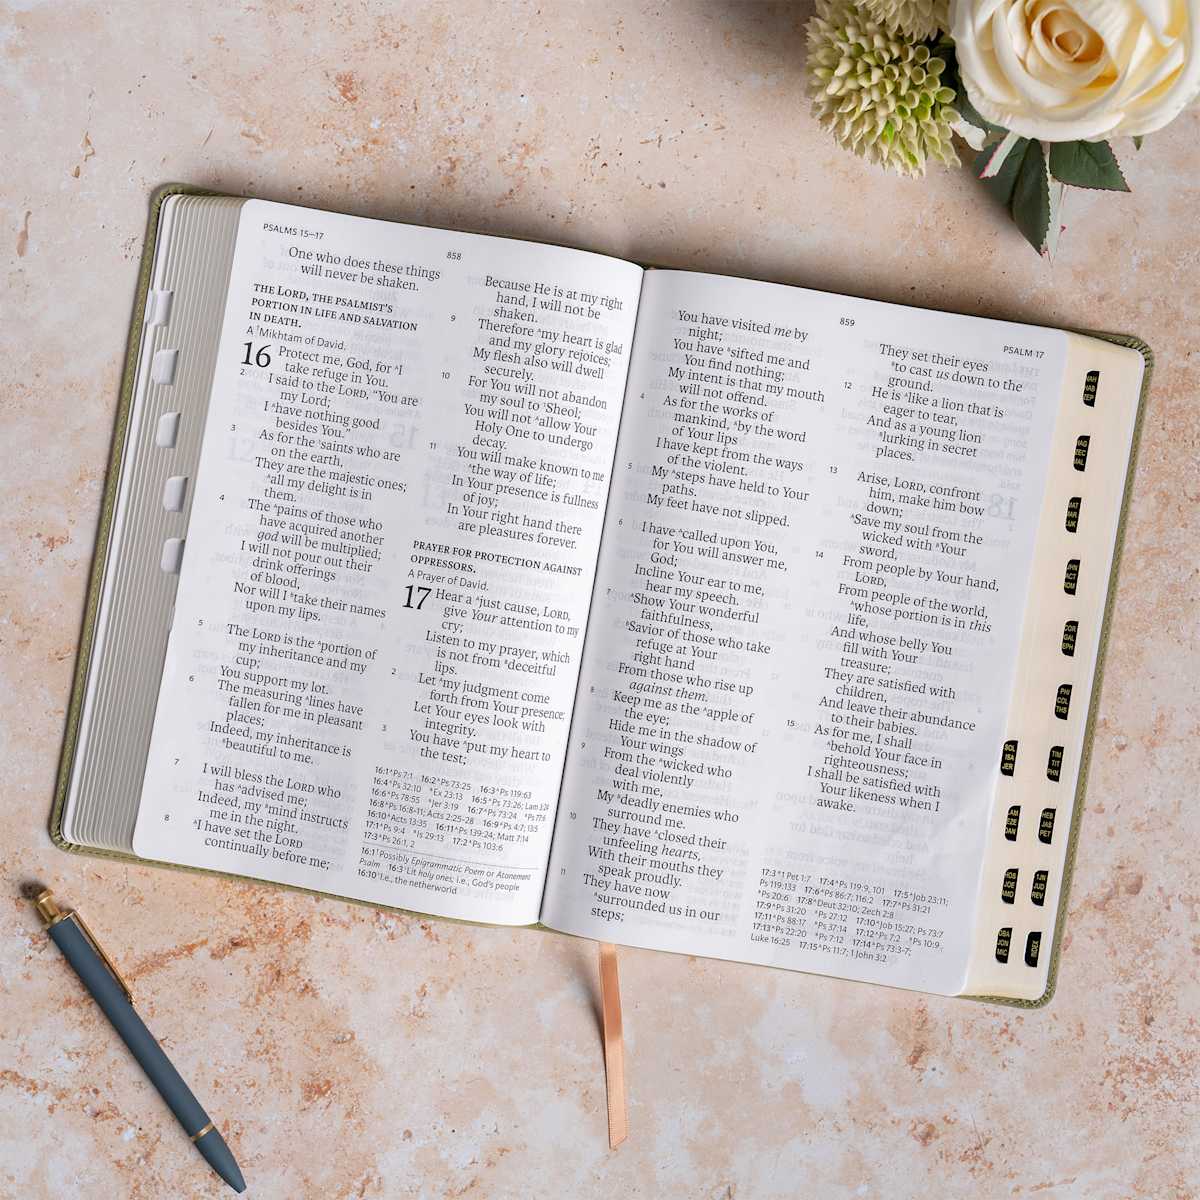 PSALMS 15–17
858
One who does these things
will never be shaken.
THE LORD, THE PSALMIST'S
PORTION IN LIFE AND SALVATION
IN DEATH.
A ¹Mikhtam of David.
16 Protect me, God, for ᴬI
take refuge in You.
2 I said to the LORD, "You are
my Lord;
I ᴬhave nothing good
besides You."
3 As for the ¹saints who are
on the earth,
They are the majestic ones;
ᴬall my delight is in
them.
4 The ᴬpains of those who
have acquired another
god will be multiplied;
I will not pour out their
drink offerings
of blood,
Nor will I ᴮtake their names
upon my lips.
5 The LORD is the ᴬportion of
my inheritance and my
cup;
You support my lot.
6 The measuring ᴬlines have
fallen for me in pleasant
places;
Indeed, my inheritance is
ᴮbeautiful to me.
7 I will bless the LORD who
has ᴬadvised me;
Indeed, my ᴮmind instructs
me in the night.
8 ᴬI have set the LORD
continually before me;
Because He is at my right
hand, I will not be
shaken.
9 Therefore ᴬmy heart is glad
and my glory rejoices;
My flesh also will dwell
securely.
10 For You will not abandon
my soul to ¹Sheol;
You will not ᴬallow Your
Holy One to undergo
decay.
11 You will make known to me
ᴬthe way of life;
In Your presence is fullness
of joy;
In Your right hand there
are pleasures forever.
PRAYER FOR PROTECTION AGAINST
OPPRESSORS.
A Prayer of David.
17 Hear a ᴬjust cause, LORD,
give Your attention to my
cry;
Listen to my prayer, which
is not from ᴮdeceitful
lips.
2 Let ᴬmy judgment come
forth from Your presence;
Let Your eyes look with
integrity.
3 You have ᴬput my heart to
the test;
16:1 ᴬPs 7:1 16:2 ᴬPs 73:25 16:3 ᴬPs 119:63
16:4 ᴬPs 32:10 ᴮEx 23:13 16:5 ᴬPs 73:26; Lam 3:24
16:6 ᴬPs 78:55 ᴮJer 3:19 16:7 ᴬPs 73:24 ᴮPs 77:6
16:8 ᴬPs 16:8-11; Acts 2:25-28 16:9 ᴬPs 4:7; 13:5
16:10 ᴬActs 13:35 16:11 ᴬPs 139:24; Matt 7:14
17:1 ᴬPs 9:4 ᴮIs 29:13 17:2 ᴬPs 103:6
17:3 ᴬPs 26:1, 2
16:1 ¹Possibly Epigrammatic Poem or Atonement
Psalm 16:3 ¹Lit holy ones; i.e., God's people
16:10 ¹I.e., the netherworld
859
PSALM 17
You have visited me by
night;
You have ᴮsifted me and
You find nothing;
My intent is that my mouth
will not offend.
4 As for the works of
mankind, ᴬby the word
of Your lips
I have kept from the ways
of the violent.
5 My ᴬsteps have held to Your
paths.
My feet have not slipped.
6 I have ᴬcalled upon You,
for You will answer me,
God;
Incline Your ear to me,
hear my speech.
7 ᴬShow Your wonderful
faithfulness,
ᴮSavior of those who take
refuge at Your
right hand
From those who rise up
against them.
8 Keep me as the ᴬapple of
the eye;
Hide me in the shadow of
Your wings
9 From the ᴬwicked who
deal violently
with me,
My ᴮdeadly enemies who
surround me.
10 They have ᴬclosed their
unfeeling hearts,
With their mouths they
speak proudly.
11 They have now
ᴬsurrounded us in our
steps;
They set their eyes
ᴮto cast us down to the
ground.
12 He is ᴬlike a lion that is
eager to tear,
And as a young lion
ᴮlurking in secret
places.
13 Arise, LORD, confront
him, make him bow
down;
ᴬSave my soul from the
wicked with ᴮYour
sword,
14 From people by Your hand,
LORD,
From people of the world,
ᴬwhose portion is in this
life,
And whose belly You
fill with Your
treasure;
They are satisfied with
children,
And leave their abundance
to their babies.
15 As for me, I shall
ᴬbehold Your face in
righteousness;
I shall be satisfied with
Your likeness when I
awake.
17:3 ᴮ1 Pet 1:7 17:4 ᴬPs 119:9, 101 17:5 ᴬJob 23:11;
Ps 119:133 17:6 ᴬPs 86:7; 116:2 17:7 ᴬPs 31:21
ᴮPs 20:6 17:8 ᴬDeut 32:10; Zech 2:8
17:9 ᴬPs 31:20 ᴮPs 27:12 17:10 ᴬJob 15:27; Ps 73:7
17:11 ᴬPs 88:17 ᴮPs 37:14 17:12 ᴬPs 7:2 ᴮPs 10:9
17:13 ᴬPs 22:20 ᴮPs 7:12 17:14 ᴬPs 73:3-7;
Luke 16:25 17:15 ᴬPs 11:7; 1 John 3:2
NAH
HAB
ZEP
HAG
ZEC
MAL
MAT
MAR
LUK
JHN
ACT
ROM
COR
GAL
EPH
PHI
COL
THS
SOL
ISA
JER
TIM
TIT
PHN
LAM
EZE
DAN
HEB
JAS
PET
HOS
JOE
AMO
1JN
JUD
REV
OBA
JON
MIC
INDEX